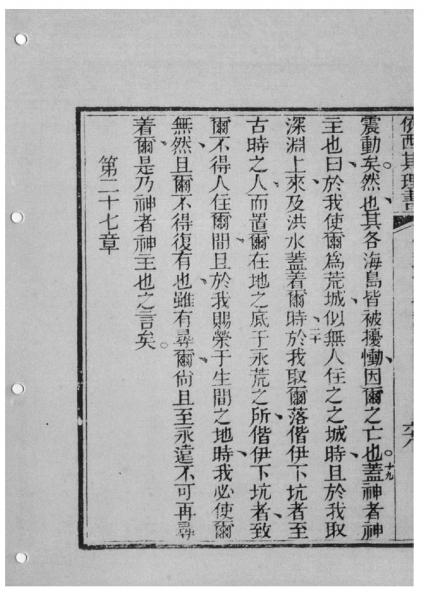 依西其理書
震動矣。然也其各海島皆被擾慟因爾之亡也。十九蓋神者神
主也曰於我使爾為荒城似無人住之之城時且於我取
深淵上來及洪水蓋着爾時二十於我取爾落偕伊下坑者至
古時之人而置爾在地之底于永荒之所偕伊下坑者致
爾不得人住爾間且於我賜榮于生間之地時我必使爾
無然且爾不得復有也雖有尋爾尙且至永遠不可再尋
着爾是乃神者神主也之言矣。
第二十七章